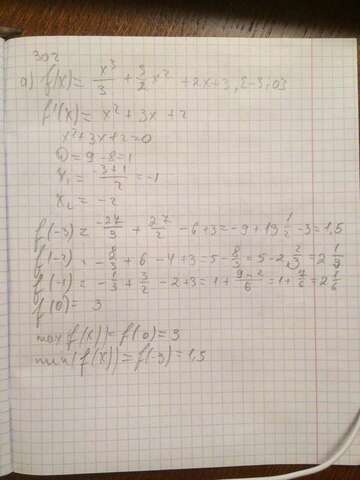 302
a) f(x) = x³/3 + 3/2 x² + 2x+3, [-3;0]
f'(x) = x² + 3x + 2
x²+3x+2=0
D = 9-8=1
x₁ = (-3+1)/2 = -1
x₂ = -2
f(-3) = -27/3 + 27/2 - 6+3 = -9 + 13 1/2 - 3 = 1,5
f(-2) = -8/3 + 6 - 4 + 3 = 5 - 8/3 = 5 - 2 2/3 = 2 1/3
f(-1) = -1/3 + 3/2 - 2+3 = 1 + (9-2)/6 = 1 + 7/6 = 2 1/6
f(0) = 3
max f(x) = f(0) = 3
min f(x) = f(-3) = 1,5